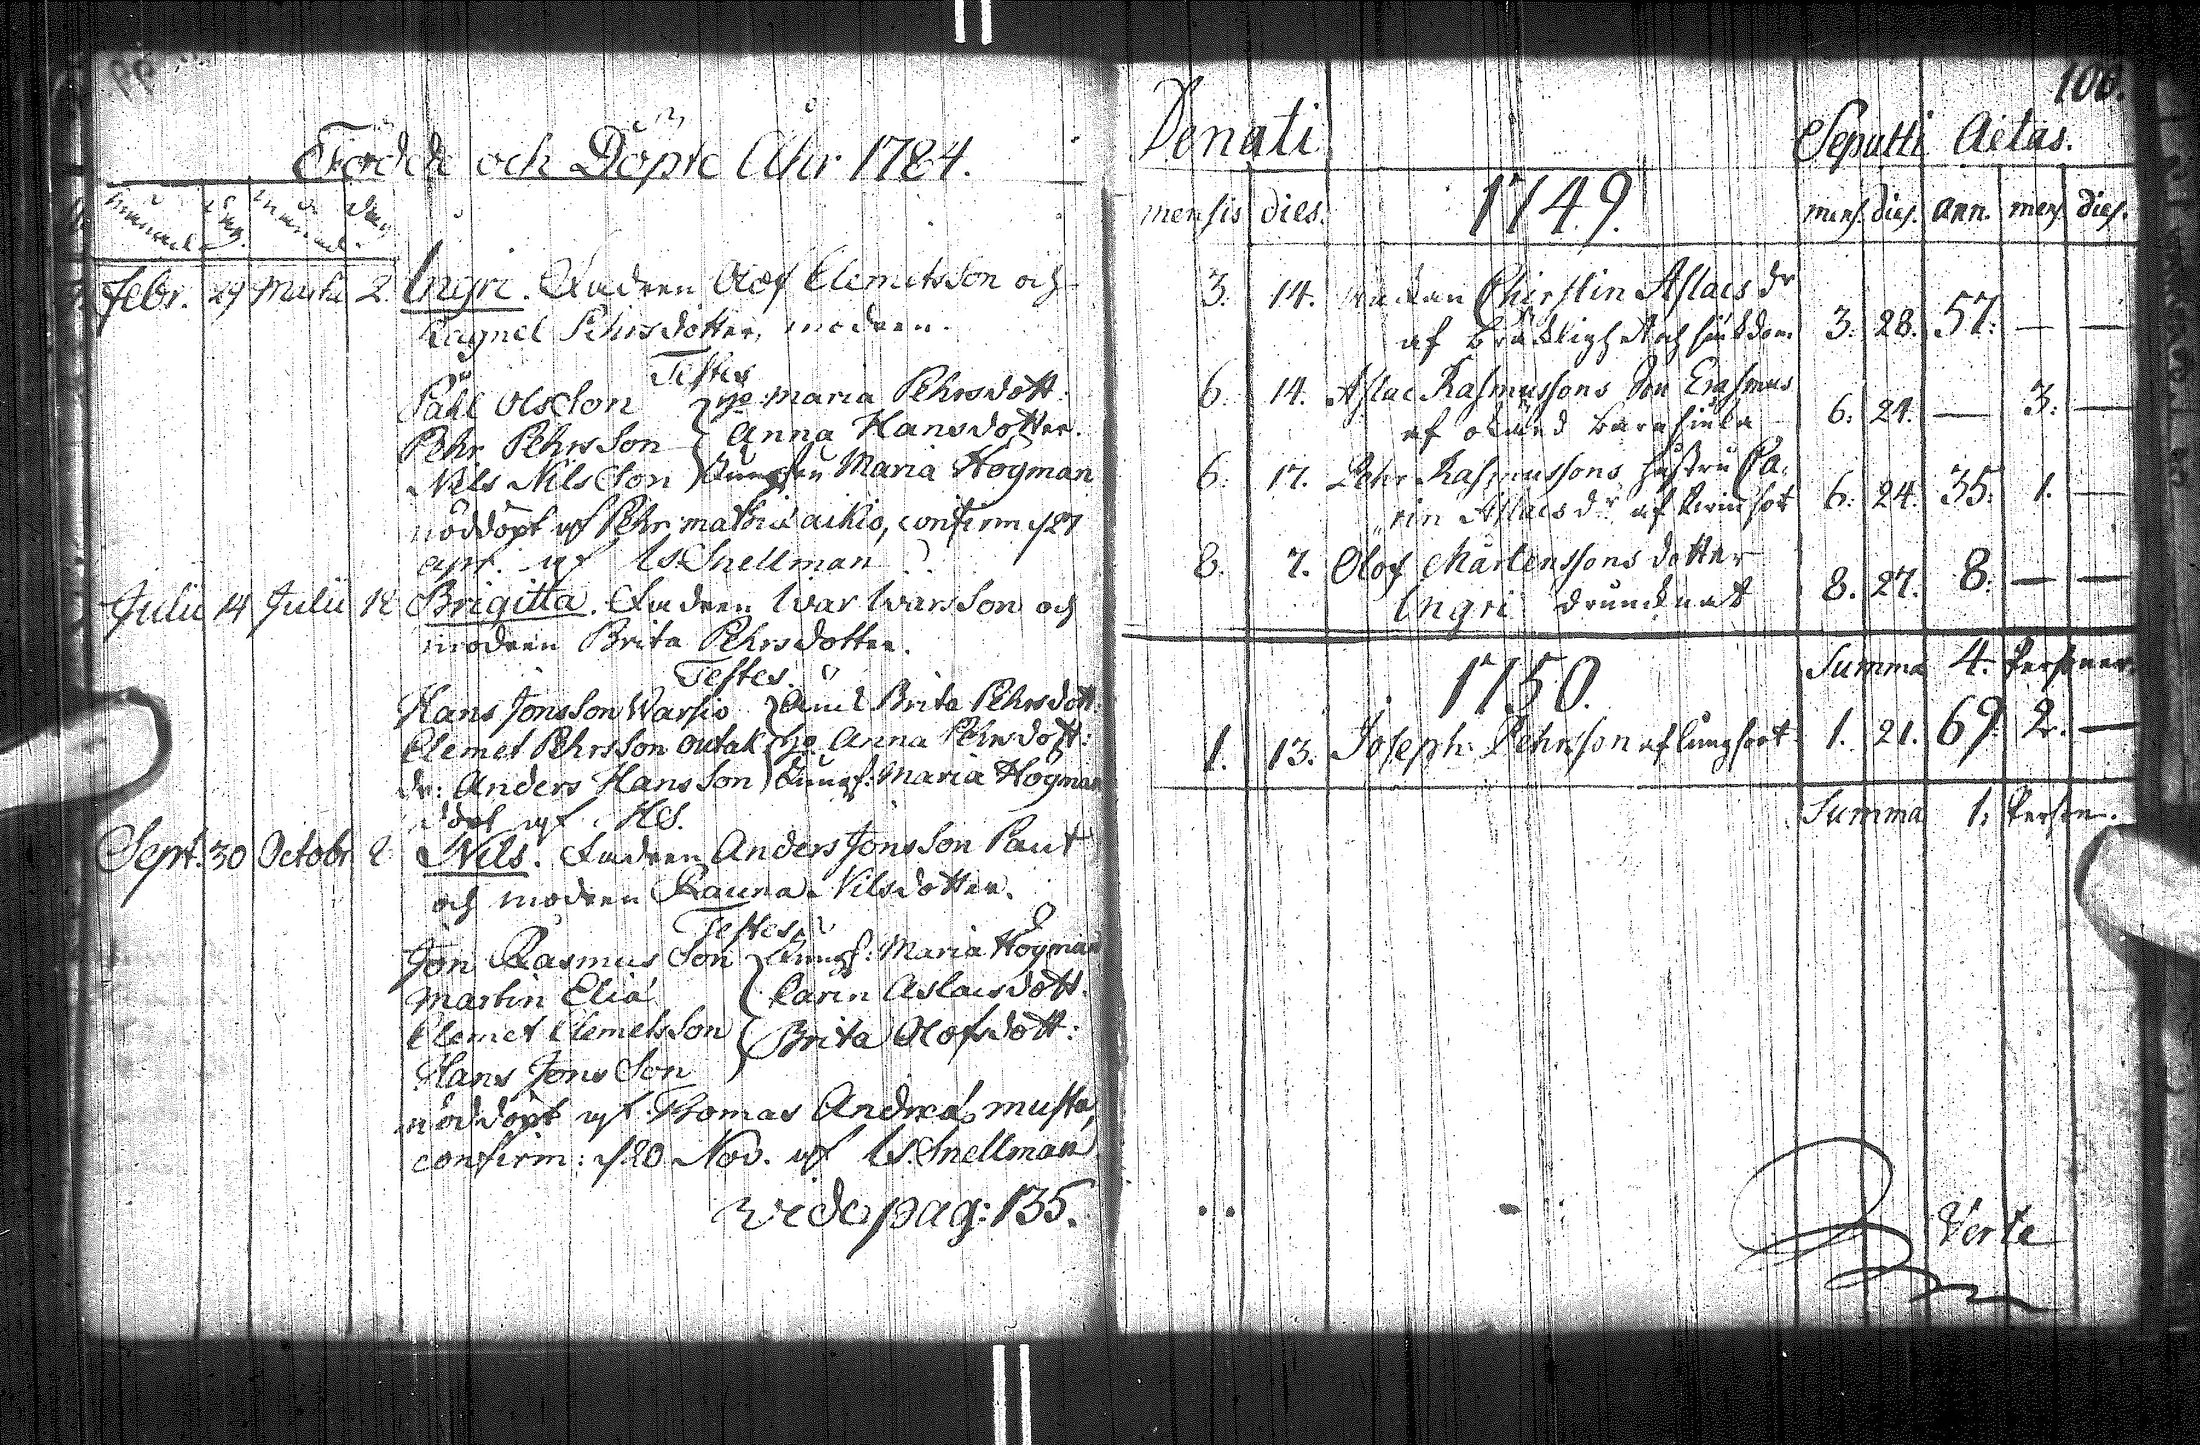 99
Födde och Döpte Åhr 1784.
månad dag månad dag
Febr. 29 Martii 2. Ingri. Fadren Olof Clemetsson och
Ragnel Pehrsdotter, modren.
Testes
Påhl Olsson } Maria Pehrsdott:
Pehr Pehrsson } Anna Hansdotter.
Nils Nilsson } Jungfru Maria Högman
nöddöpt af Pehr Mathiæ Aikio, confirm d 27
apr. af Is. Snellman
Julii 14 Julii 18 Brigitta. Fadren Ivar Ivarsson och
modren Brita Pehrsdotter.
Testes.
Hans Jonsson Warsio } Brita Pehrsdott.
Clemet Pehrsson Outak } Anna Pehrsdott:
dr: Anders Hansson } Jungf: Maria Högman
döpt af HS.
Sept. 30 Octobr 2 Nils. Fadren Anders Jonsson Paut
och modren Rauna Nilsdotter.
Testes
Jon Rasmusson } Jungf: Maria Högman
Martin Eliæ { Karin Aslacsdott.
Clemet Clemetsson { Brita Olofsdott:
Hans Jonsson
nöddöpt af Thomas Andreæ Musta,
confirm: d 20 Nov. af Is. Snellman
vide pag: 135.
100.
Denati Sepulti Aetas.
mensis dies. 1749. mens. dies. ann. mens. dies.
3. 14. Enckan Chirstin Aslacs dr
af bräcklighet och siukdom 3. 28. 57. — —
6. 14. Aslac Rasmussons Son Erasmus
af okänd barnsiuka 6. 24. — 3. —
6. 17. Pehr Rasmussons hustru Ca-
rin Aslacs dr af 6. 24. 35. 1. —
8. 7. Olof Mårtenssons dotter
Ingri drunknat 8. 27. 8. — —
1750. Summa 4. Personer.
1. 13. Joseph Pehrsson af lungsot 1. 21. 69. 2. —
Summa 1. Person.
Verte